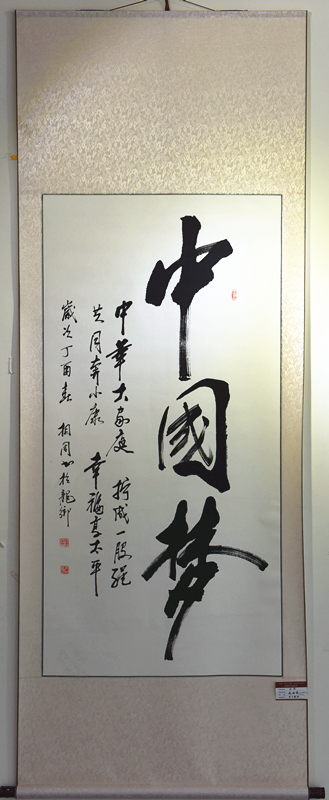 中國梦
中華大家庭 拧成一股绳
共同奔小康 幸福享太平
歲次丁酉春 相同书於龍鄉